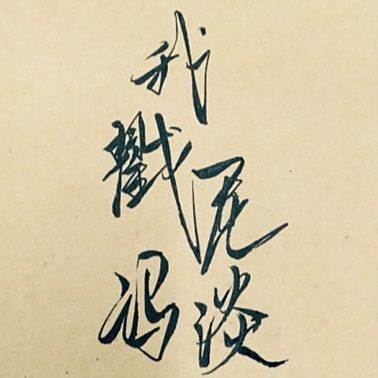 我
戳
冯
淡